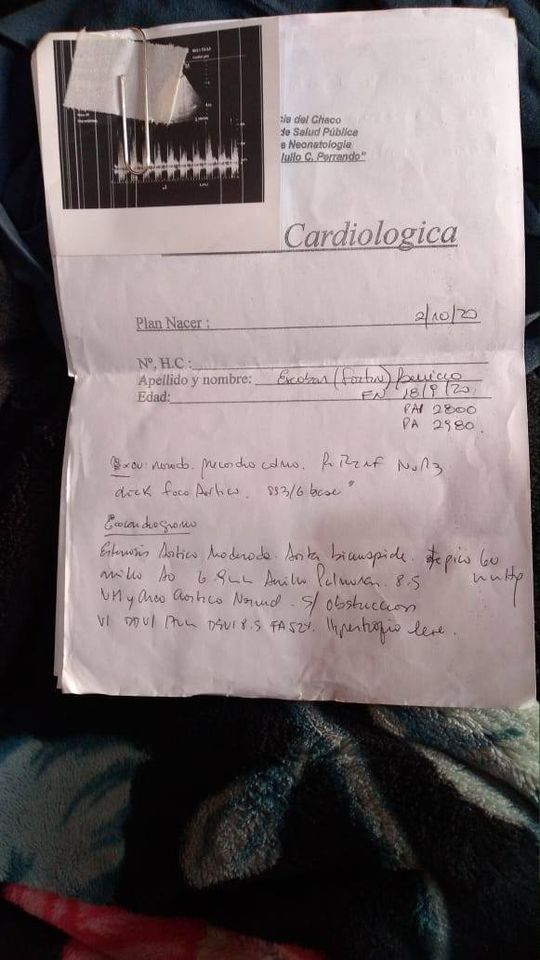 cia del Chaco
de Salud Pública
e Neonatologia
Julio C. Perrando"
Cardiologica
Plan Nacer : 2/10/20
Nº, H.C :
Apellido y nombre: Escobar
Edad: FN 18/9/20
PAN 2800
PA 2980.
R1 R2 nf No R3
click foco Aortico. SS3/6 base"
Ecocardiograma
Estenosis Aortica Moderada. Aorta bicuspide. pico 60
mmHg
Anillo Ao 6.9mm Anillo Pulmonar 8.5
VM y Arco Aortico Normal. s/ obstruccion
VI DDVI 17mm DSVI 8.5 FA 52%. Hipertrofia leve.